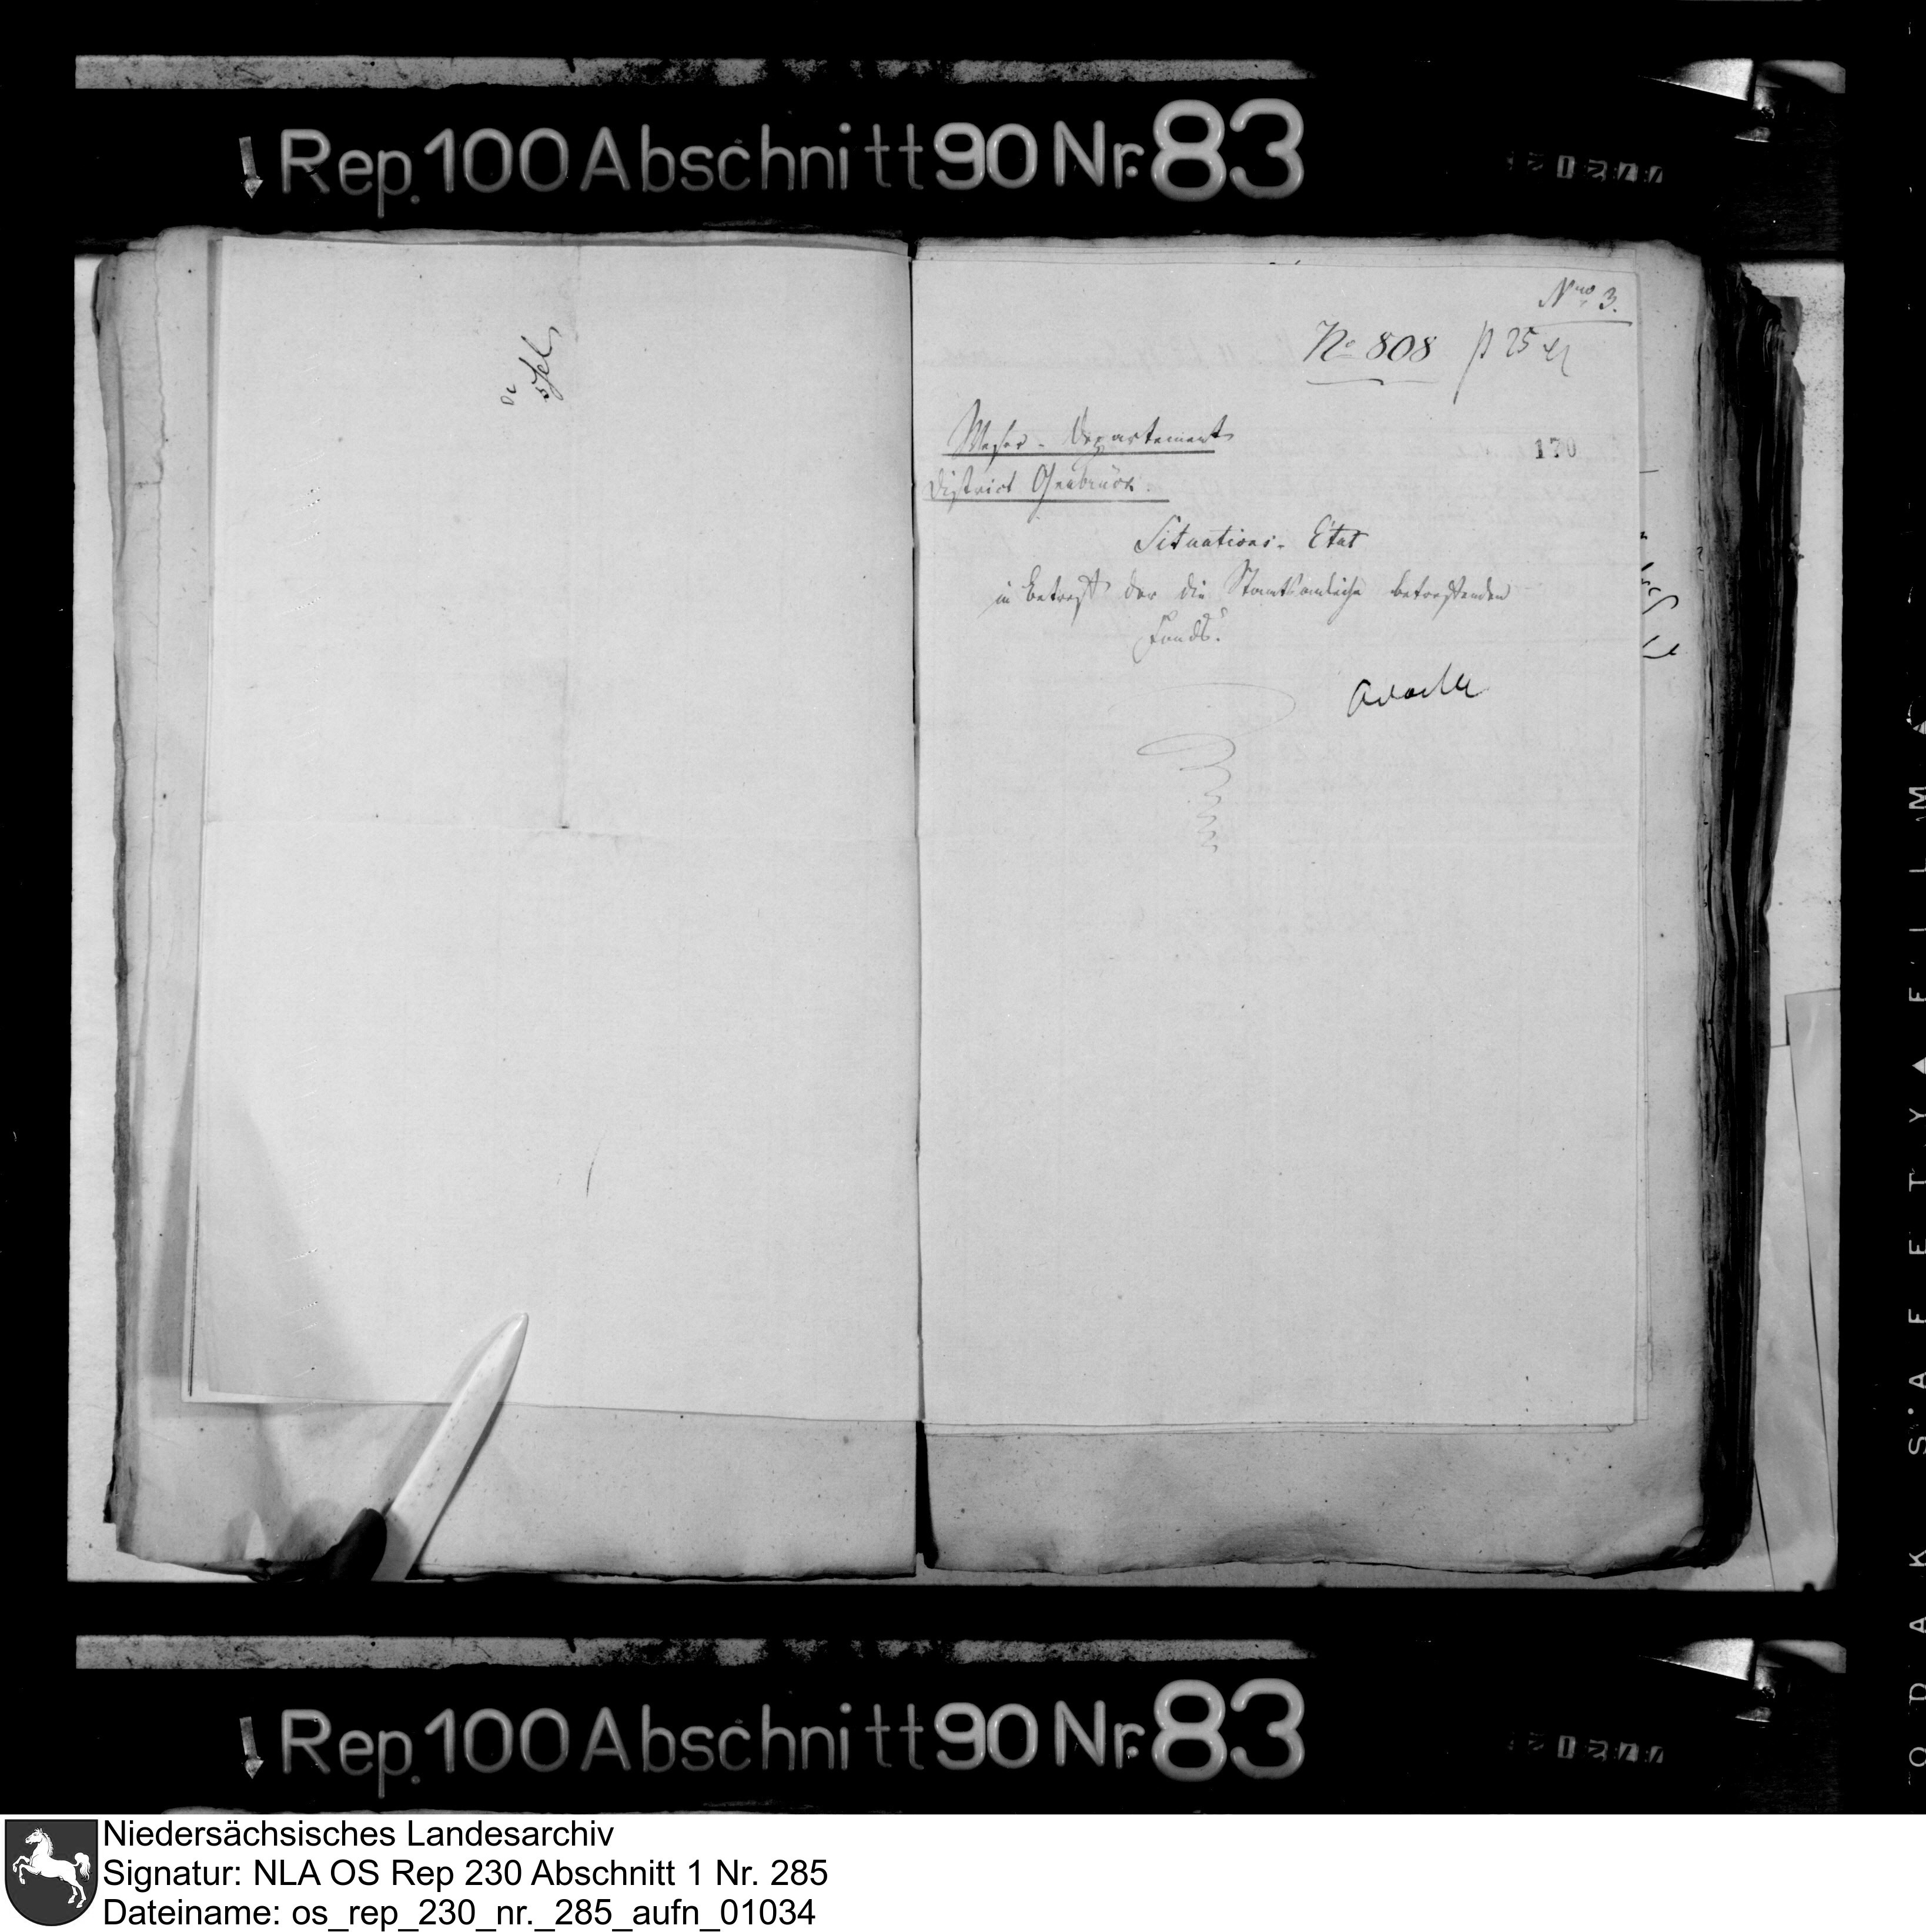 Rep. 100 Abschnitt 90 Nr. 83
Nro 3.
No 808
170
Weser-Departement
District Osnabrück.
Situations-Etat
in betreff der die Staatsanleihe betreffenden
Fonds.
Rep. 100 Abschnitt 90 Nr. 83
KODAK SAFETY FILM
Niedersächsisches Landesarchiv
Signatur: NLA OS Rep 230 Abschnitt 1 Nr. 285
Dateiname: os_rep_230_nr._285_aufn_01034